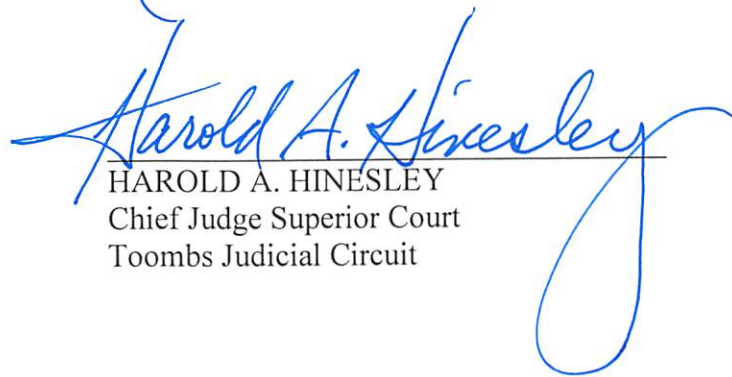 Harold A. Hinesley
HAROLD A. HINESLEY
Chief Judge Superior Court
Toombs Judicial Circuit